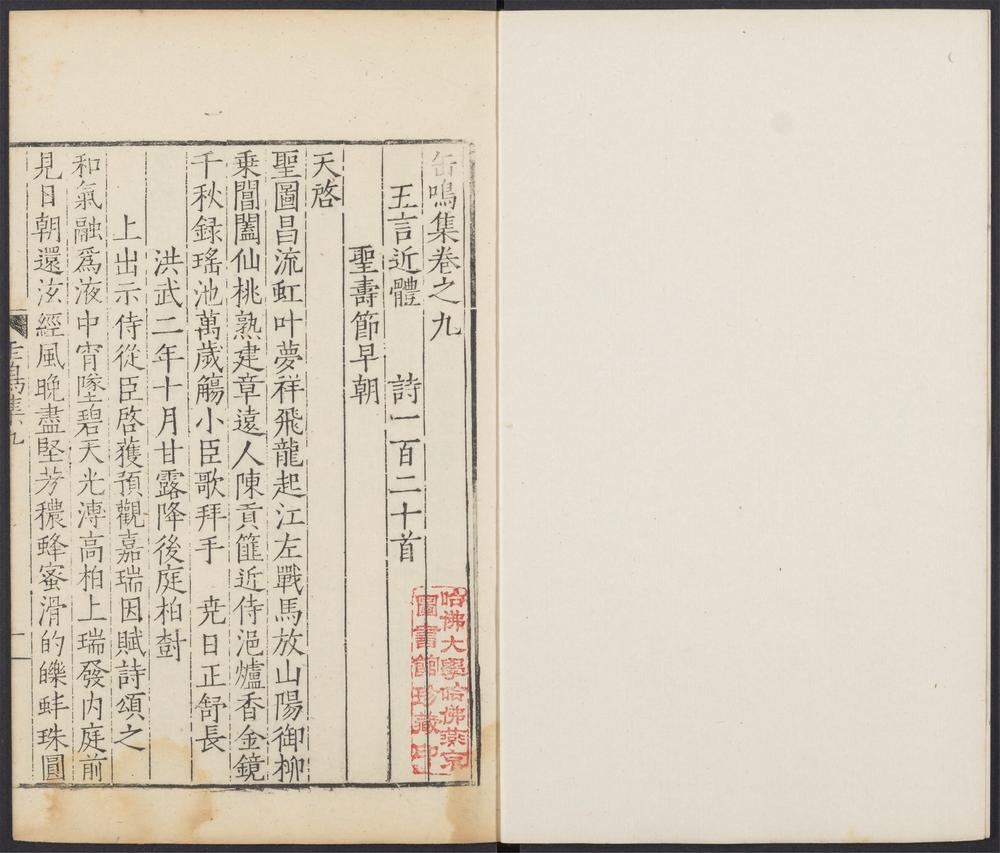 缶鳴集卷之九
五言近體　詩一百二十首
聖壽節早朝
天啓
聖圖昌流虹叶夢祥飛龍起江左戰馬放山陽御柳
乗閶闔仙桃熟建章遠人陳貢篚近侍浥爐香金鏡
千秋録瑤池萬歲觴小臣歌拜手　尭日正舒長
洪武二年十月甘露降後庭柏樹
上出示侍從臣啓獲預觀嘉瑞因賦詩頌之
和氣融爲液中宵墜碧天光溥高柏上瑞發内庭前
見日朝還泫經風晚盡堅芳穠蜂蜜滑的皪蚌珠圓
缶鳴集九
一
哈佛大學哈佛燕京
圖書館珍藏印